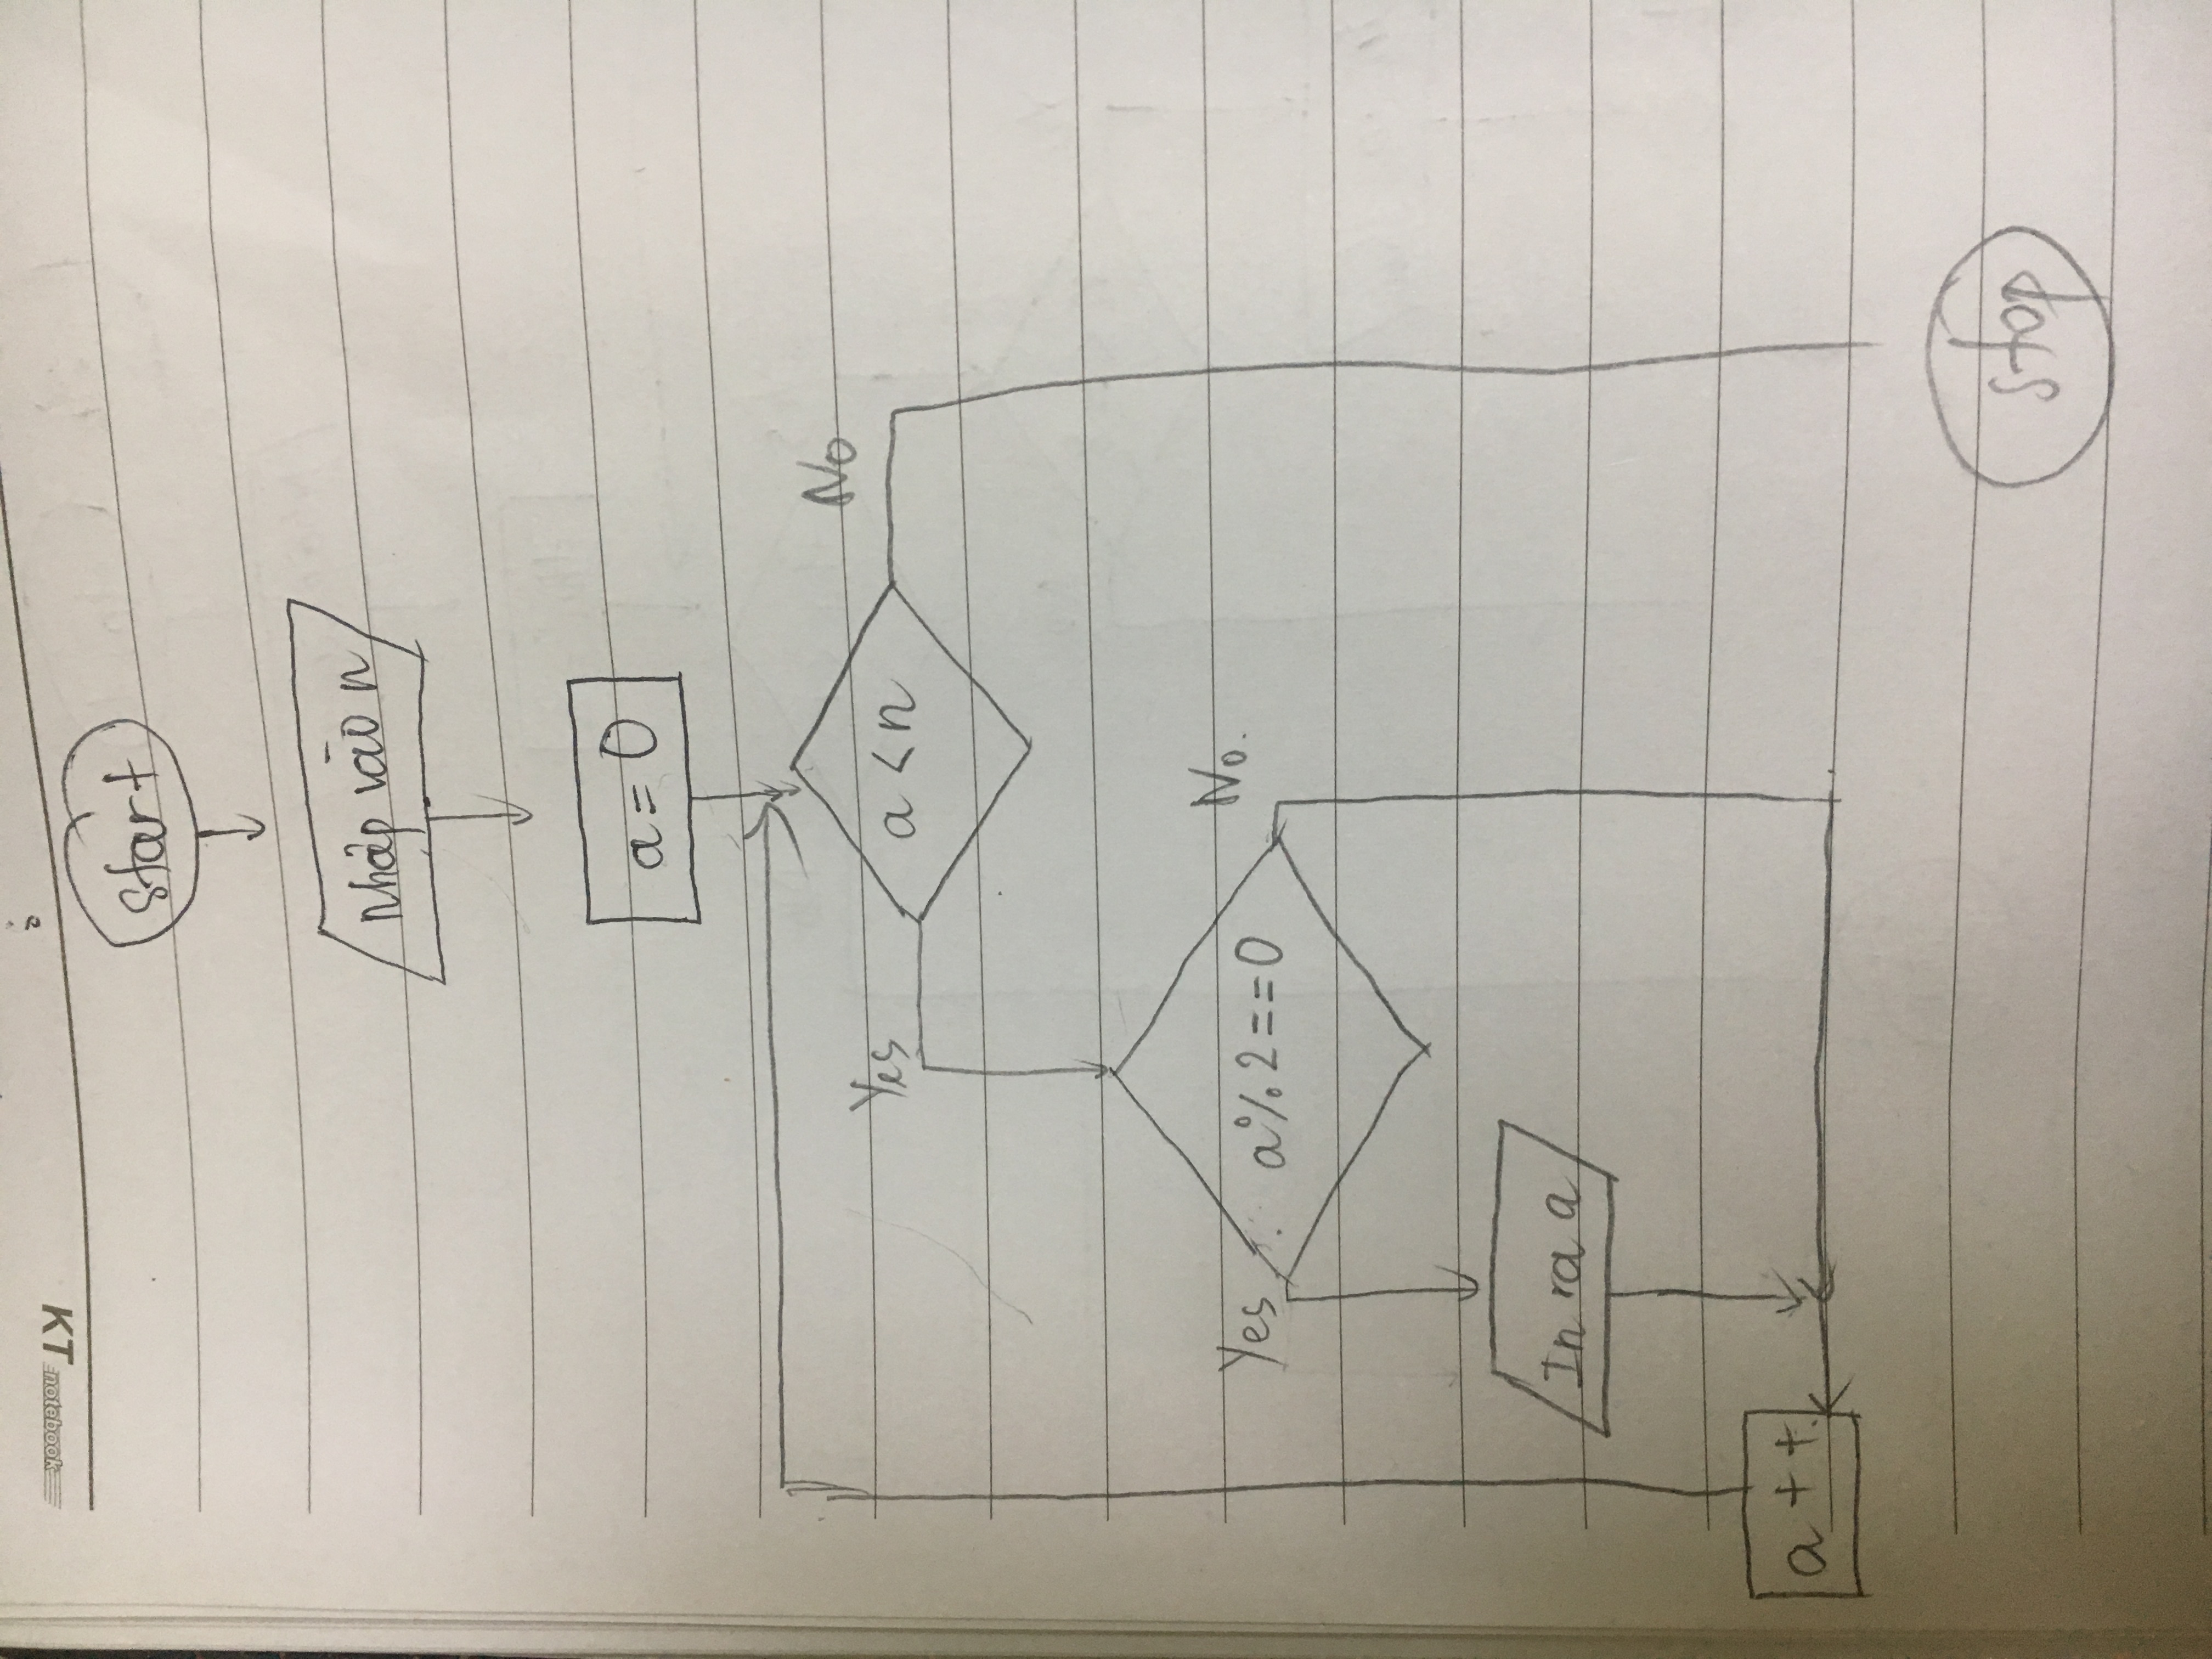 KT notebook
start
Nhập vào n
a = 0
a < n
Yes
No
a % 2 == 0
Yes
No.
In ra a
a ++
stop